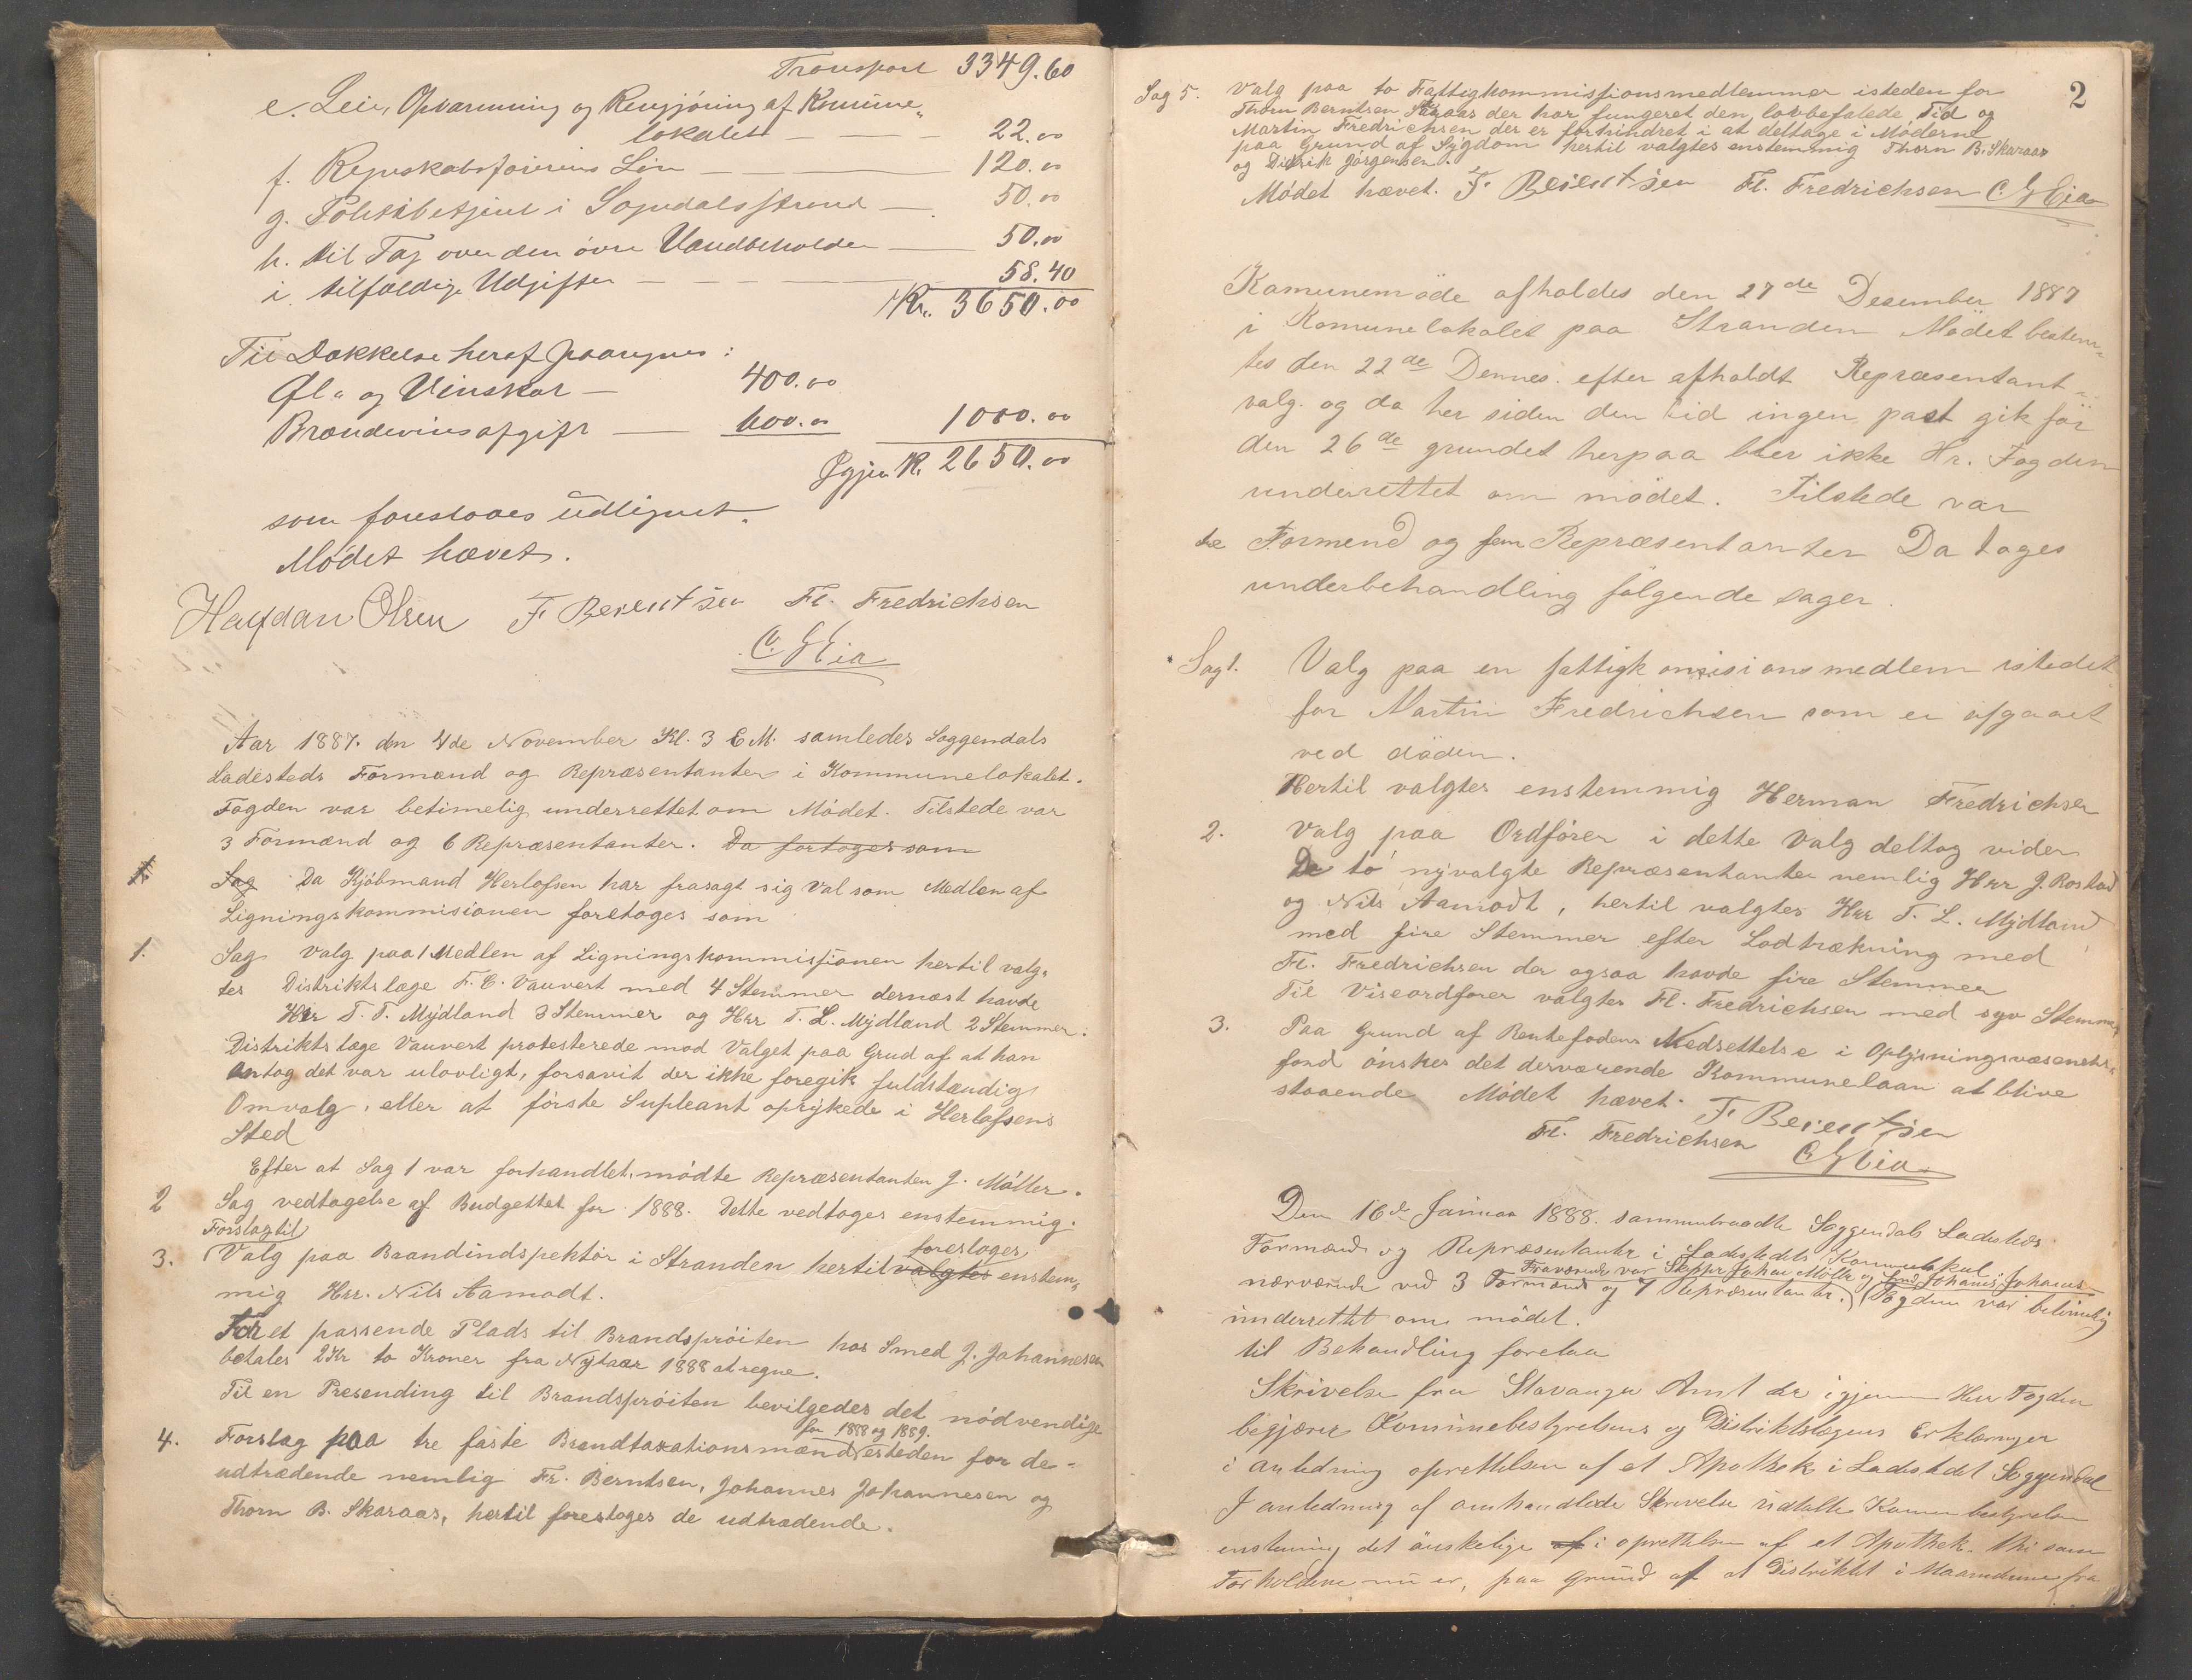 Transport 3349.60
e. Leie, Opvarmning og Rengjøring af Komune„
lokalet — — — 22.00
f. Regnskabsførerens Løn — — 120.00
g. Politibetjent i Sogndalsstrand — 50.00
h. til Tag over den øvre Vandbeholder — 50.00
i. tilfældige Udgifter — — — 58.40
Kr. 3650.00
Til Dækkelse heraf paaregnes:
Øl- og Vinskat — 400.00
Brændevinsafgift — 600.00 1000.00
Igjen K. 2650.00
som foreslaaes udlignet.
Mødet hævet.
Halfdan Olsen F Berentsen Fl. Fredrichsen
C. G Eia
Aar 1887. den 4de November Kl. 3 E M. samledes Soggendals
Ladesteds Formænd og Repræsentanter i Kommunelokalet.
Fogden var betimelig underrettet om Mødet. Tilstede var
3 Formænd og 6 Repræsentanter. Da fortoges som
1. Sag Da Kjöbmand Herlofsen har frasagt sig Val som Medlen af
Ligningskommisionen foretoges som
1. Sag Valg paa 1 Medlen af Ligningskommissionen hertil valg„
tes Distriktslæge F. C. Vauvert med 4 Stemmer dernæst havde
Hrr T. T. Mydland 3 Stemmer og Hrr T. L. Mydland 2 Stemmer.
Distriktslæge Vauvert protesterede mod Valget paa Grud af at han
antog det var ulovligt, forsavit der ikke foregik fuldstændig
Omvalg, eller at förste Supleant oprykede i Herlofsens
Sted
Efter at Sag 1 var forhandlet, mödte Repræsentanten J. Möller.
2 Sag vedtagelse af Budgettet for 1888. Dette vedtoges enstemmig.
Forslag til
3. Valg paa Brandindspektör i Stranden hertil valgtes foresloges enstem„
mig Hrr. Nils Aamodt.
For et passende Plads til Brandspröiten hos Smed J. Johannesen
betales 2Kr to Kroner fra Nytaar 1888 at regne.
Til en Presending til Brandspröiten bevilgedes det nödvendige
4. Forslag paa tre faste Brandtaxationsmænd for 1888 og 1889. isteden for de-
udtrædende nemlig Fr. Berntsen, Johannes Johannesen og
Thorn B. Skaraas, hertil foresloges de udtrædende.
2
Sag 5. Valg paa to Fattigkommissionsmedlemmer isteden for
Thorn Berntsen Skaraas der har fungeret den lovbefalede Tid og
Martin Fredrichsen der er forhindret i at deltage i Möderne
paa Grund af Sygdom hertil valgtes enstemmig Thorn B. Skaraas
og Didrik Jörgensen.
Mödet hævet. F Berentsen Fl. Fredrichsen C G Eia
Kamunemöde afholdes den 27de Desember 1887
i Komunelokalet paa Stranden Mödet bestem„
tes den 22de Dennes. efter afholdt Repræsentant„
valg. og da her siden den tid ingen past gik för
den 26de grundet herpaa blev ikke Hr. Fogden
underrettet om mödet. Tilstede var
tre Formend og fem Repræsentanter Da tages
underbehandling fölgende sager.
Sag 1. Valg paa en fattigkomisionsmedlem istedet
for Martin Fredrichsen som er afgaaet
ved döden.
Hertil valgtes enstemmig Herman Fredrichsen
2. Valg paa Ordförer i dette Valg deltog vider
De to nyvalgte Repræsentanter nemlig Hrr J. Rostad
og Nils Aamodt, hertil valgtes Hrr T. L. Mydland
med fire Stemmer efter Lodtrækning med
Fl. Fredrichsen der ogsaa havde fire Stemmer
Til Viseordfører valgtes Fl. Fredrichsen med syv Stemmer
3. Paa Grund af Rentefodens Nedsettelse i Oplysningsvæsenets„
fond önskes det derværende Kommunelaan at blive
staaende Mödet hævet. F Berentsen
Fl. Fredrichsen C G Eia
Den 16de Januar 1888. sammentraadte Soggendals Ladesteds
Formænd og Repræsentanter i Ladestedets Komunelokal
Fraværende var Skippr Johan Möller og Smed Johanes Johanes
nærværende ved 3 Formænd og 7 Repræsentanter. Fogden var betimelig
underrettet om mödet.
til Behandling forelaa
Skrivelse fra Stavanger Amt der igjennem Herr Fogden
begjærer Kommunebestyrelsens og Distriktslægens Erklæringer
i anledning oprettelsen af et Apothek i Ladestedet Soggendal
I anledning af omhandlede Skrivelse udtalte Komunbestyrelsen
enstemig det önskelige af i oprettelsen af et Apothek. thi som
Forholdene nu er, paa Grund af at Distriktet i Maanderne fra